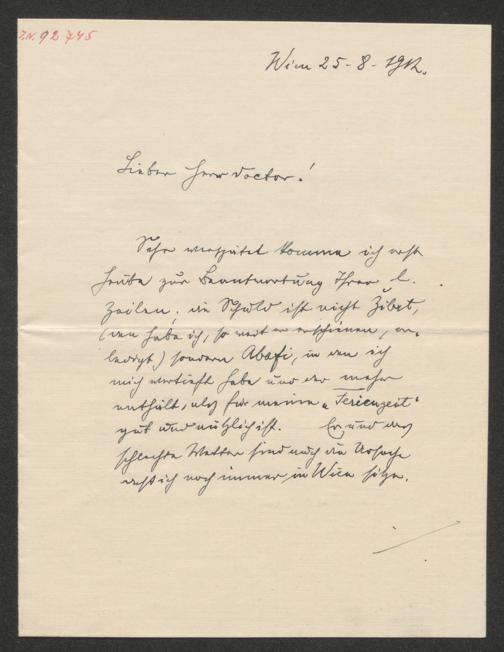 I.N. 92745
Wien 25-8-1912.
Lieber Herr Doctor!
Sehr verspätet komme ich erst
heute zur Beantwortung Ihrer l.
Zeilen; die Schuld ist nicht Zibet,
(den habe ich, so weit er erschienen, er-
ledigt) sondern Abafi, in den ich
mich vertieft habe und der mehr
enthält, als für meine „Ferienzeit“
gut und nützlich ist. Er und das
schlechte Wetter sind auch die Ursache
daß ich noch immer in Wien sitze.